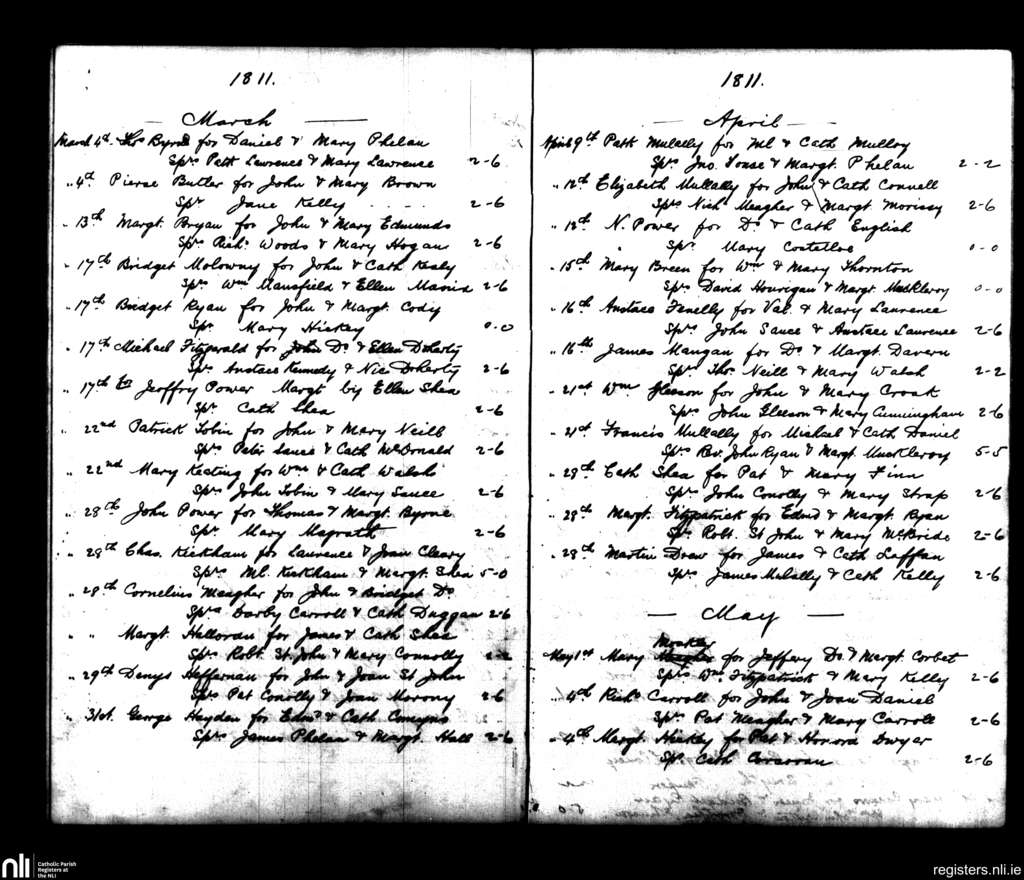 1811.
March
March 4th Thos Byrne for Daniel & Mary Phelan
Sprs Patt Lawrence & Mary Lawrence 2-6
" 4th Pierse Butler for John & Mary Brown
Spr Jane Kelly 2-6
" 13th Margt. Bryan for John & Mary Edmunds
Sprs Richd Woods & Mary Hogan 2-6
" 17th Bridget Molowny for John & Cath Kealy
Sprs Wm Mansfield & Ellen 2-6
" 17th Bridget Ryan for John & Margt. Cody
Spr Mary Hickey 0-0
" 17th Michael Fitzgerald for John Do & Ellen Doherty
Sprs Anstace Kennedy & Nic Doherty 2-6
" 17th Jeoffry Power Margt by Ellen Shea
Spr Cath Shea 2-6
" 22nd Patrick Tobin for John & Mary Neill
Sprs Peter Sause & Cath McDonald 2-6
" 22nd Mary Keating for Wm & Cath Walsh
Sprs John Tobin & Mary Sause 2-6
" 28th John Power for Thomas & Margt. Byrne
Spr Mary Magrath 2-6
" 28th Chas. Kickham for Laurence & Joan Cleary
Sprs Ml. Kickham & Margt. Shea 5-0
" 28th Cornelius Meagher for John & Bridget Do
Sprs Darby Carroll & Cath Duggan 2-6
" " Margt. Halloran for James & Cath Shea
Sprs Robt. St. John & Mary Connolly 2-2
" 29th Denys Heffernan for John & Joan St John
Sprs Pat Conolly & Joan Morony 2-6
" 31st. George Hayden for Edmd & Cath Comyns
Sprs James Phelan & Margt. Hall 2-6
1811.
April
April 9th Patk Mulally for Ml & Cath Mulloy
Sprs Jno. & Margt. Phelan 2-2
" 12th Elizabeth Mullally for John & Cath Connell
Sprs Nich Meagher & Margt. Morissy 2-6
" 12th N. Power for Do & Cath English
Spr Mary Costelloe 0-0
" 15th Mary Breen for Wm & Mary Thornton
Sprs David Hourigan & Margt. Muckleroy 0-0
" 16th Anstace Fenelly for Val. & Mary Laurence
Sprs John Sause & Anstace Laurence 2-6
" 16th James Mangan for Do & Margt. Davern
Sprs Thos. Neill & Mary Walsh 2-2
" 21st Wm Gleeson for John & Mary Croak
Sprs John Gleeson & Mary Cunningham 2-6
" 21st Francis Mullally for Michael & Cath Daniel
Sprs Rev. John Ryan & Margt. Muckleroy 5-5
" 28th Cath Shea for Pat & Mary Finn
Sprs John Conolly & Mary Strap 2-6
" 28th Margt. Fitzpatrick for Edmd & Margt. Ryan
Sprs Robt. St John & Mary McBride 2-6
" 28th Martin Drew for James & Cath Laffan
Sprs James Mulally & Cath Kelly 2-6
May
Mockley
May 1st Mary Meagher for Jeffery Do & Margt. Corbet
Sprs Wm Fitzpatrick & Mary Kelly 2-6
" 4th Richd Carroll for John & Joan Daniel
Sprs Pat Meagher & Mary Carroll 2-6
" 4th Margt. Hickey for Pat & Honora Dwyer
Spr. Cath Corcoran 2-6
nli
Catholic Parish
Registers at
the NLI
registers.nli.ie